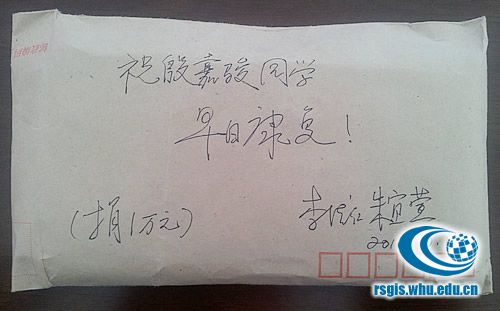 祝殷嘉骏同学
早日康复!
(捐1万元)
李德仁 朱宜萱
201
rsgis.whu.edu.cn